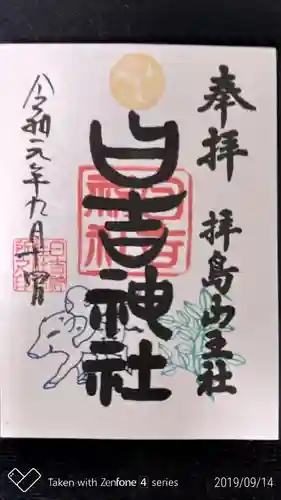 奉拝
拝島山王社
日吉神社
令和元年九月十四日
Taken with Zenfone 4 series
2019/09/14